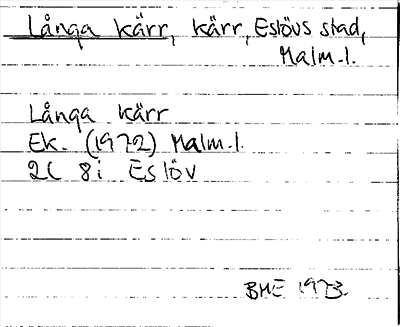 Långa kärr, kärr, Eslövs stad,
Malm.l.
Långa kärr
Ek. (1972) Malm.l.
2C 8i Eslöv
BHE 1973.